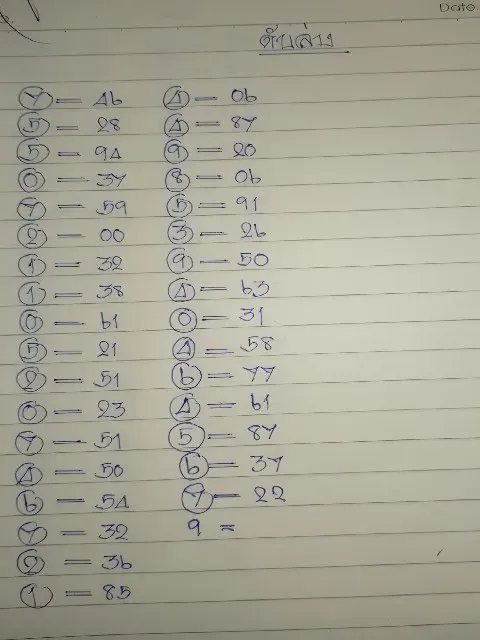 Date.
ดับล่าง
7 = 46
5 = 28
5 = 94
0 = 37
7 = 59
2 = 00
1 = 32
1 = 38
0 = 61
5 = 21
2 = 51
0 = 23
7 = 51
4 = 50
6 = 54
7 = 32
2 = 36
1 = 85
4 = 06
4 = 87
9 = 20
8 = 06
5 = 91
3 = 26
9 = 50
4 = 63
0 = 31
4 = 58
6 = 77
4 = 61
5 = 87
6 = 37
7 = 22
9 =